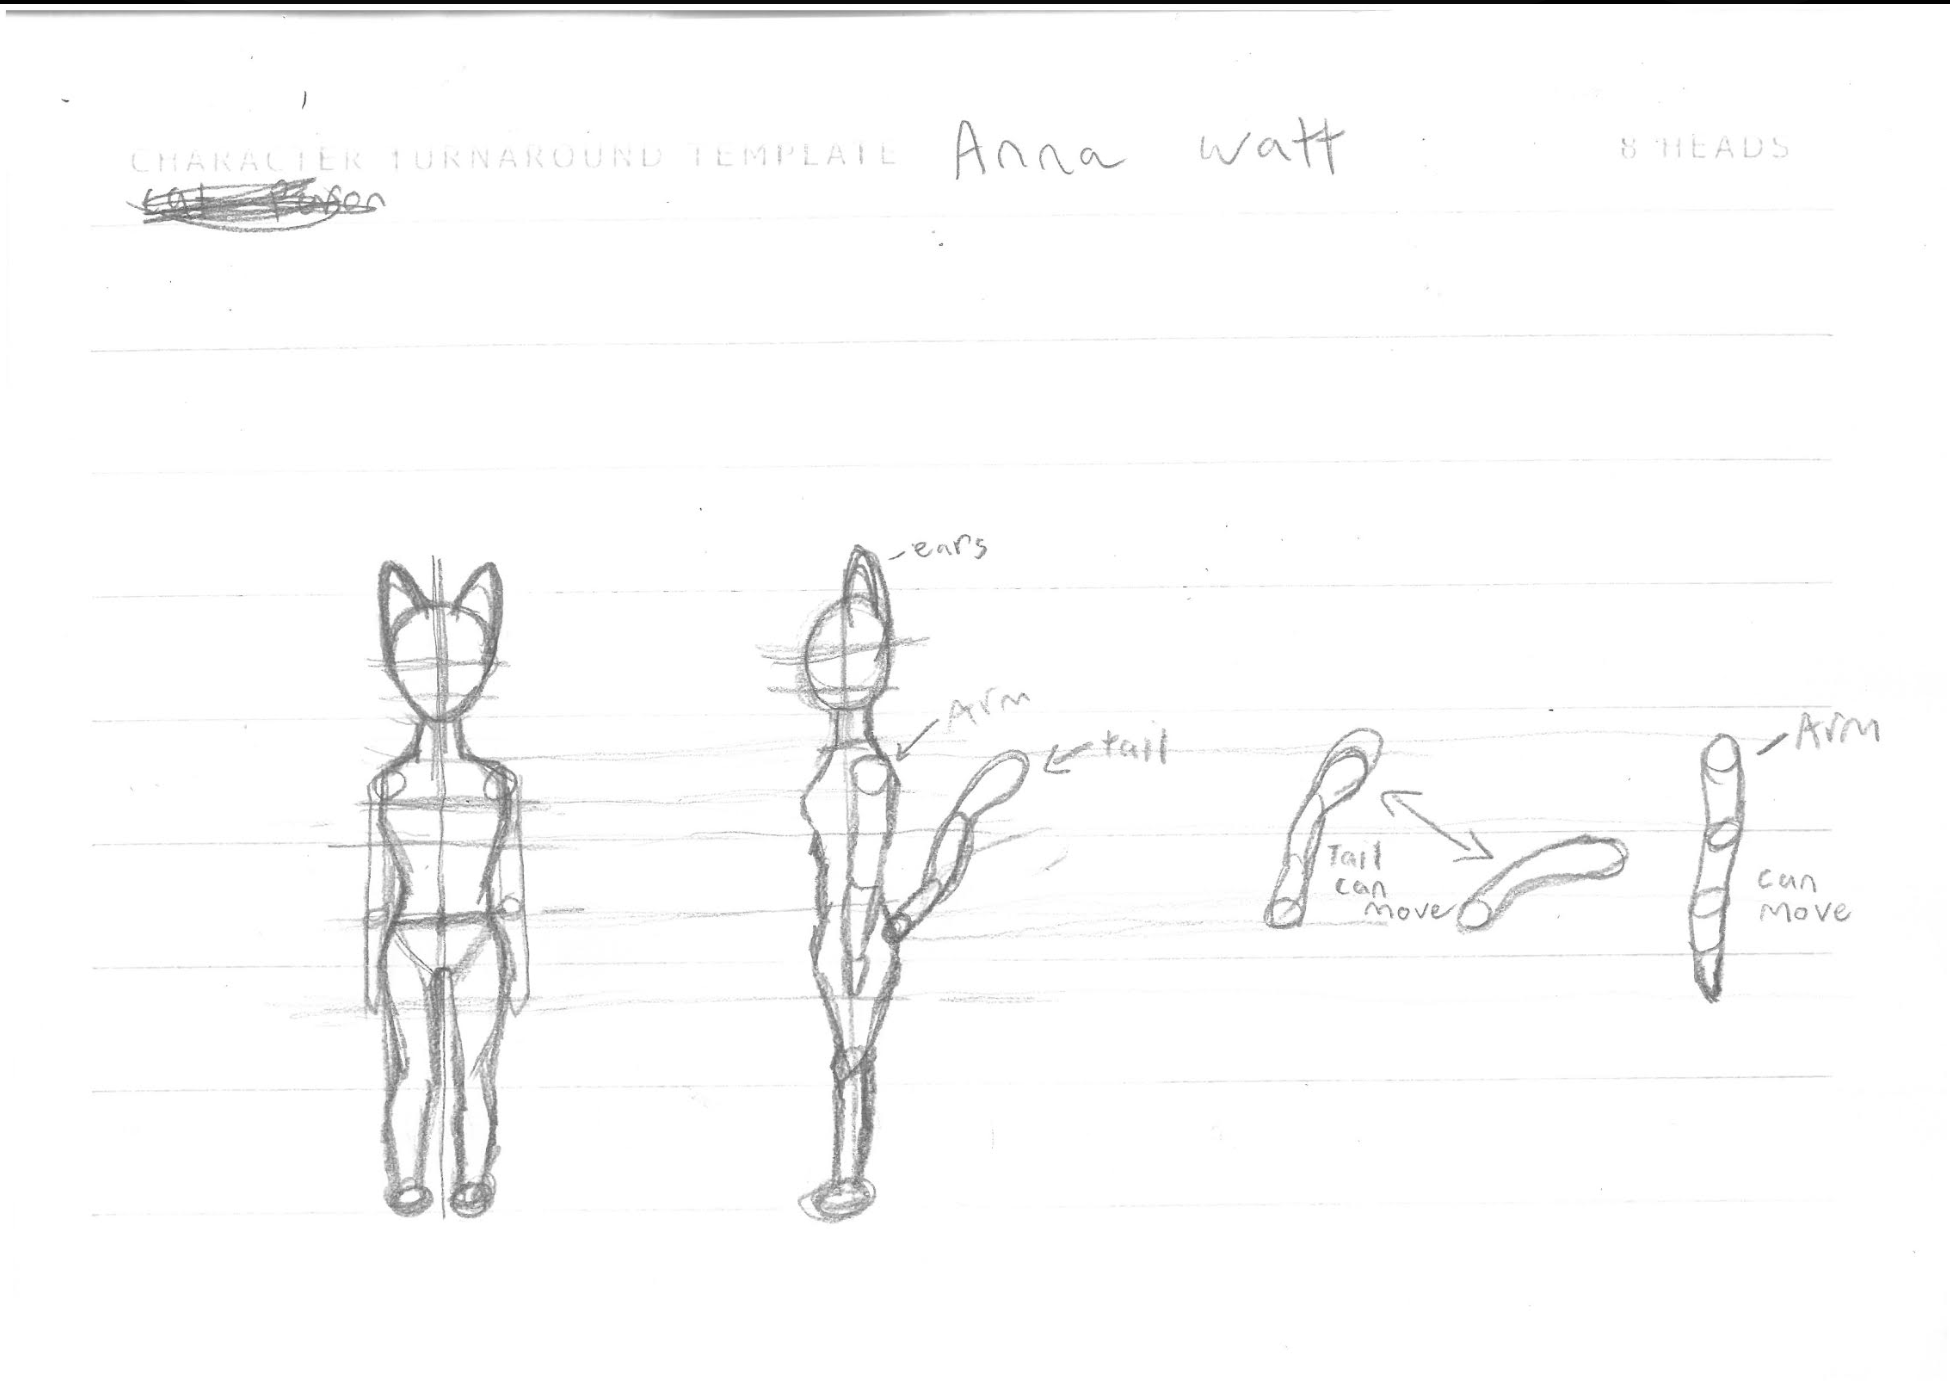 CHARACTER TURNAROUND TEMPLATE Anna Watt 8 HEADS
ears
Arm
tail
Arm
Tail
can
move
can
move